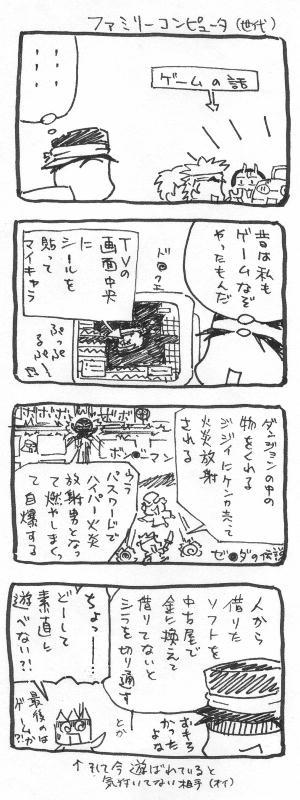 ファミリーコンピュータ(世代)
・・・・・・
ゲームの話
昔は私も
ゲームなぞ
やったもんだ
ド●クエ
TVの
画面中央
に
シールを
貼って
マイキャラ
ダンジョンの中の
物をくれる
ジジイにケンカ売って
火炎放射
される
ゼ●ダの伝説
ボン●ーマン
ウラ
パスワードで
ハイパー火炎
放射男となっ
て燃やしまくっ
て自爆する
人から
借りた
ソフトを
中古屋で
金に換えて
借りてないと
シラを切り通す
とか
おもろ
かった
よな
ちょっ――
どーして
素直に
遊べない?!
最後のは
ゲームか
↑そして今遊ばれていると
気付いてない相手(オイ)